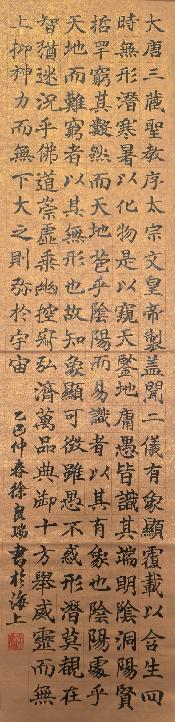 大唐三藏聖教序太宗文皇帝製蓋聞二儀有象顯覆載以含生四
時無形潛寒暑以化物是以窺天鑒地庸愚皆識其端明陰洞陽賢
哲罕窮其數然而天地苞乎陰陽而易識者以其有象也陰陽處乎
天地而難窮者以其無形也故知象顯可徵雖愚不惑形潛莫覩在
智猶迷況乎佛道崇虛乘幽控寂弘濟萬品典御十方舉威靈而無
上抑神力而無下大之則彌於宇宙
乙巳仲春徐良瑞書於海上